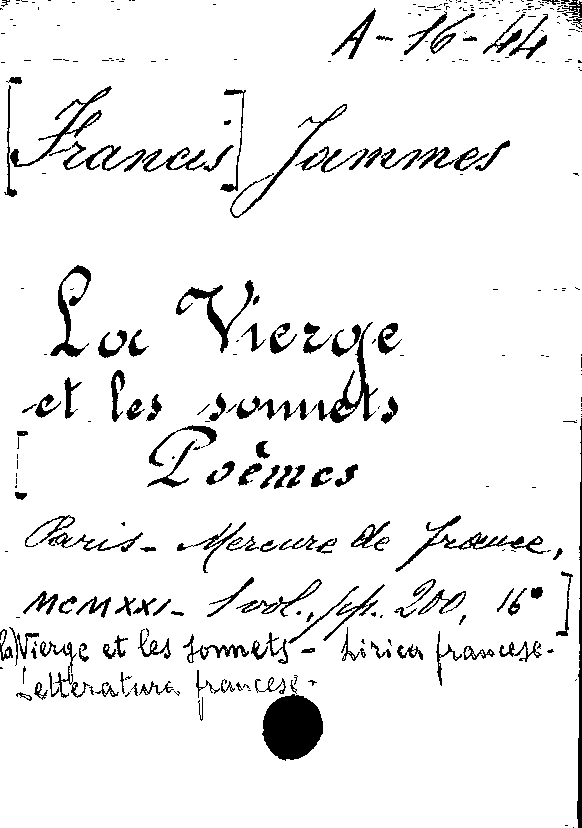 A-16-44
[Francis] Jammes
La Vierge
et les sonnets
[ Poèmes
Paris - Mercure de France,
MCMXXI - 1 vol., pp. 200, 16°]
(la) Vierge et les sonnets - Lirica francese.
Letteratura francese.